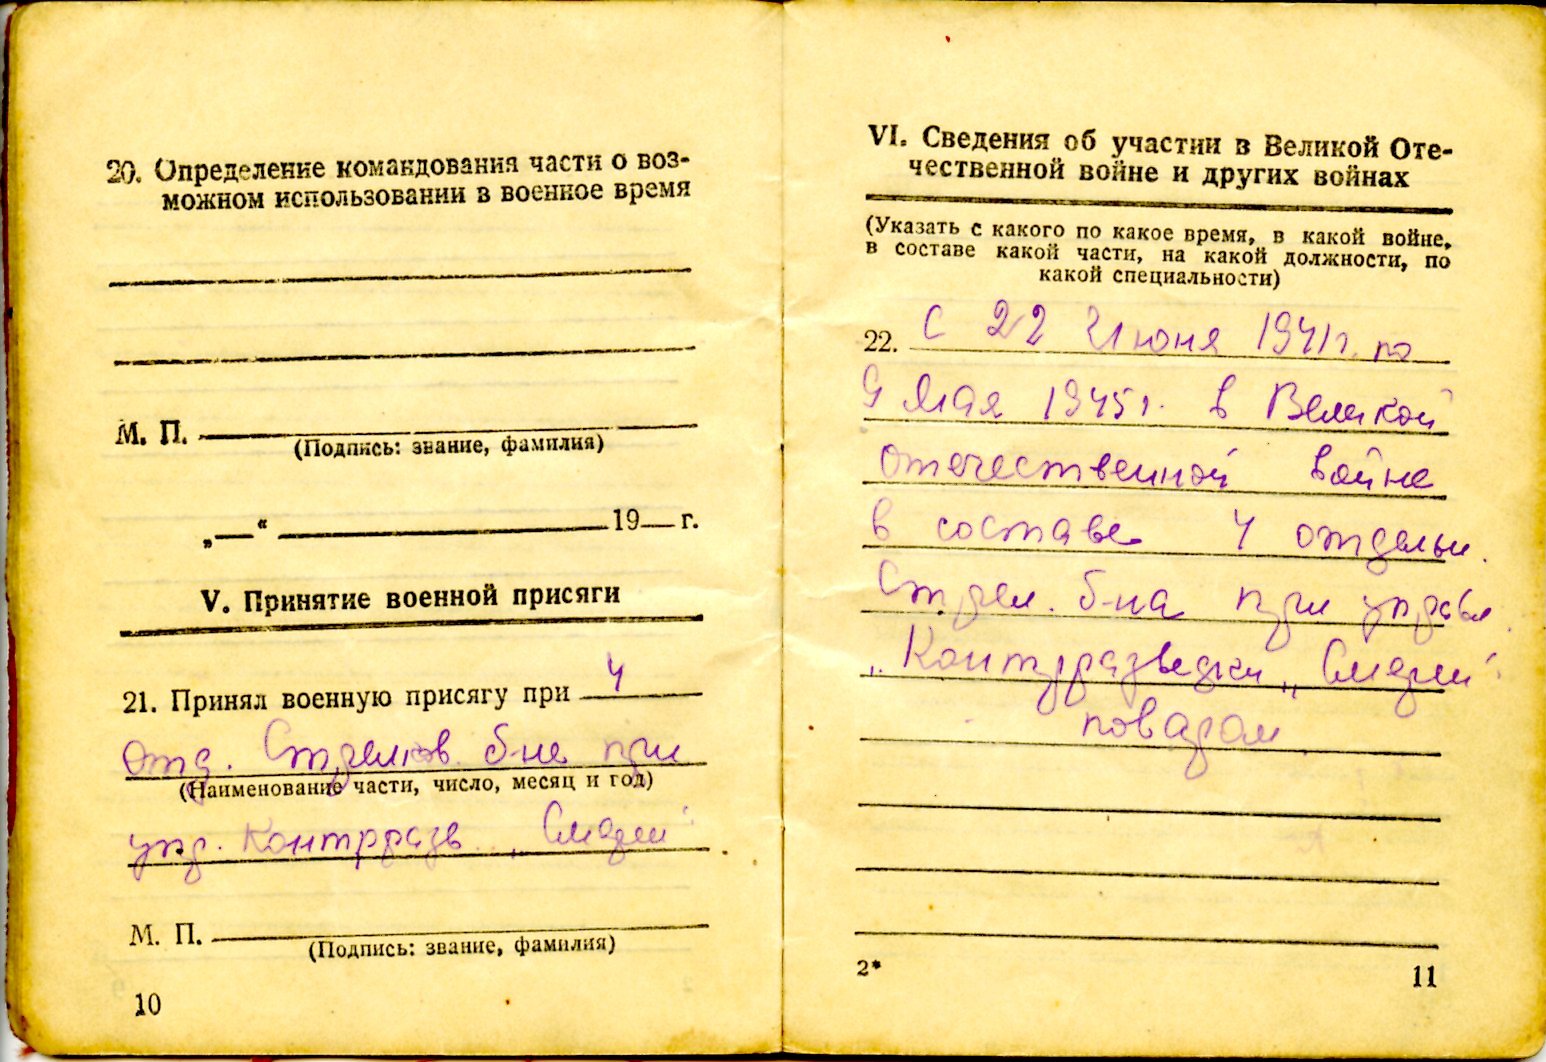 20. Определение командования части о воз-
можном использовании в военное время
М. П.
(Подпись: звание, фамилия)
„ “ 19 г.
V. Принятие военной присяги
21. Принял военную присягу при 4
отд. Стрелков. б-не при
(Наименование части, число, месяц и год)
упр. Контрразв. „Смерш"
М. П.
(Подпись: звание, фамилия)
10
VI. Сведения об участии в Великой Оте-
чественной войне и других войнах
(Указать с какого по какое время, в какой войне,
в составе какой части, на какой должности, по
какой специальности)
22. С 22 Июня 1941г. по
9 Мая 1945г. в Великой
отечественной войне
в составе 4 отдельн.
Стрел. б-на при управл.
„Контрразведки „Смерш"
поваром
2*
11